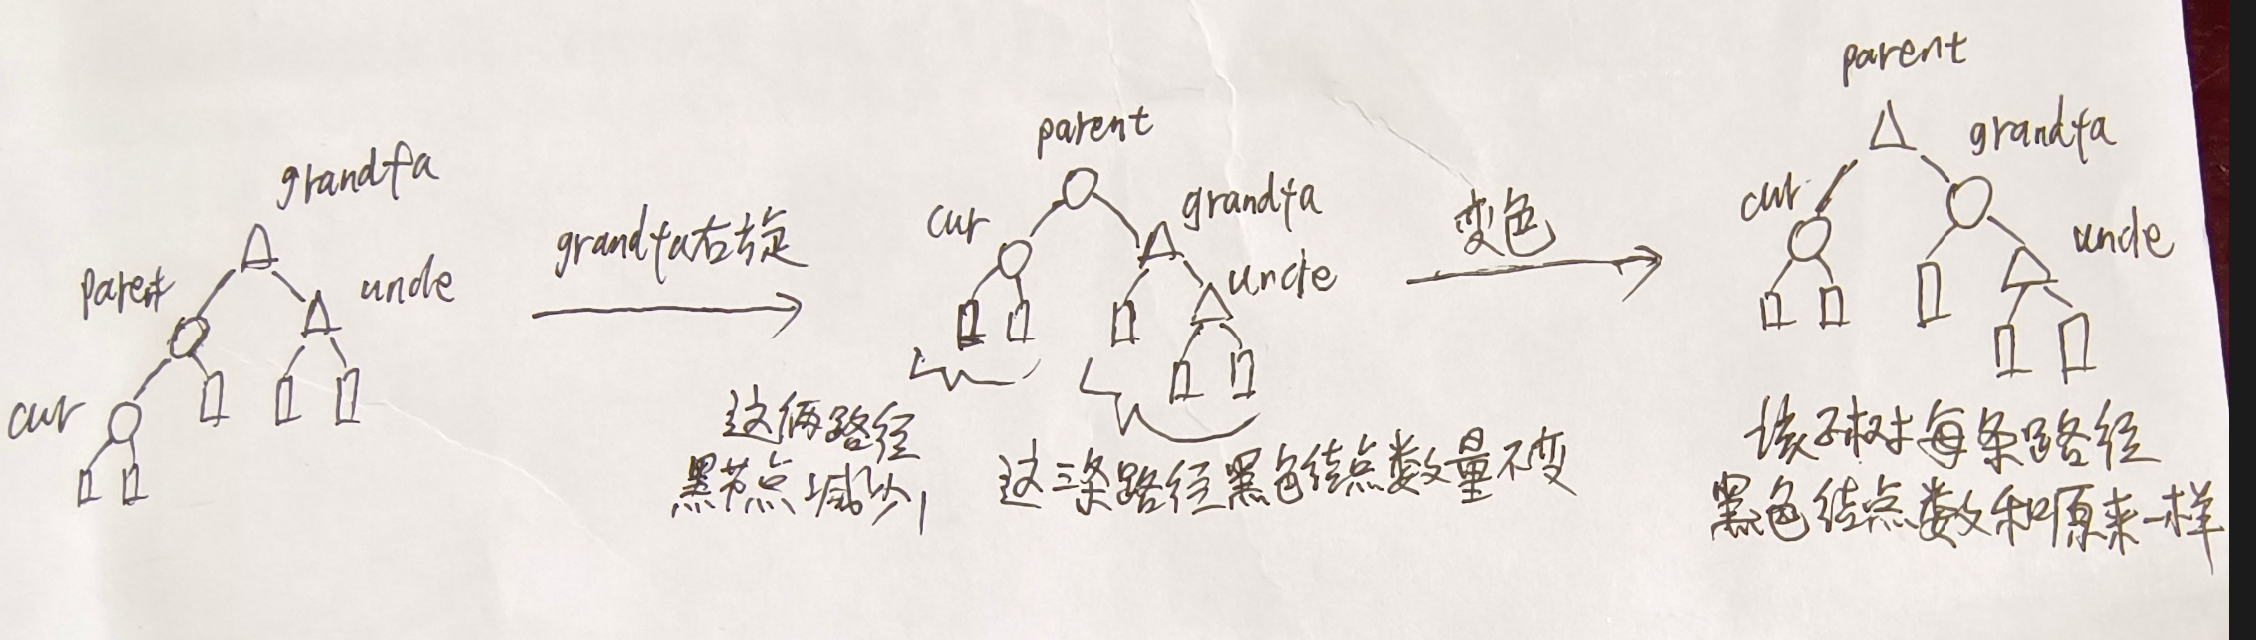 grandfa
parent
uncle
cur
grandfa右旋
parent
cur
grandfa
uncle
这俩路径
黑节点减少1
这三条路径黑色结点数量不变
变色
parent
cur
grandfa
uncle
该子树每条路径
黑色结点数和原来一样